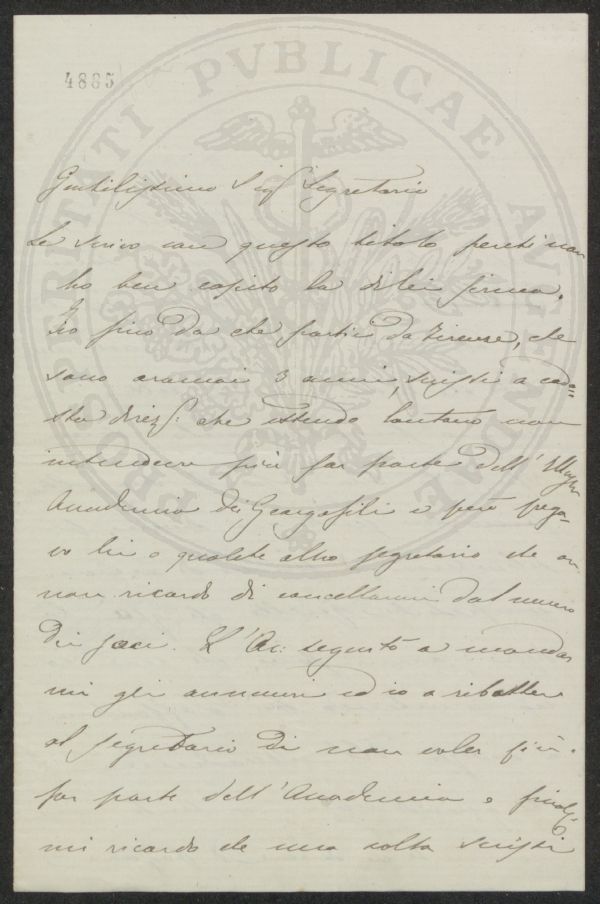 4885
PROSPERITATI PVBLICAE AVGENDAE
Gentilissimo Sigr Segretario
Le scrivo con questo titolo perchè non
ho ben capito la di lei firma.
Io fino da che partii da Firenze, che
sono oramai 3 anni, scrissi a code=
sta direz: che essendo lontano non
intendevo più far parte dell'
Accademia dei Georgofili e però prega-
vo lei o qualche altro segretario che
non ricordo di cancellarmi dal numero
dei soci. L'Ac: seguitò a mandar
mi gli annunzi ed io a ribatter
al segretario di non voler più
far parte dell'Accademia e
mi ricordo che una volta scrissi